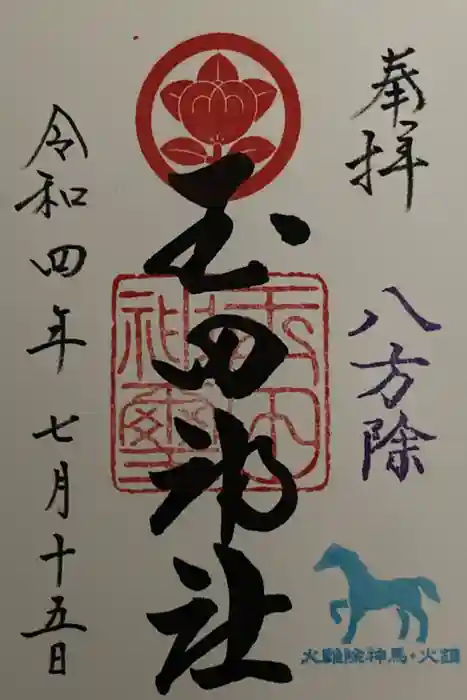 奉拝
八方除
玉田神社
令和四年七月十五日
火難除神馬・火鎮